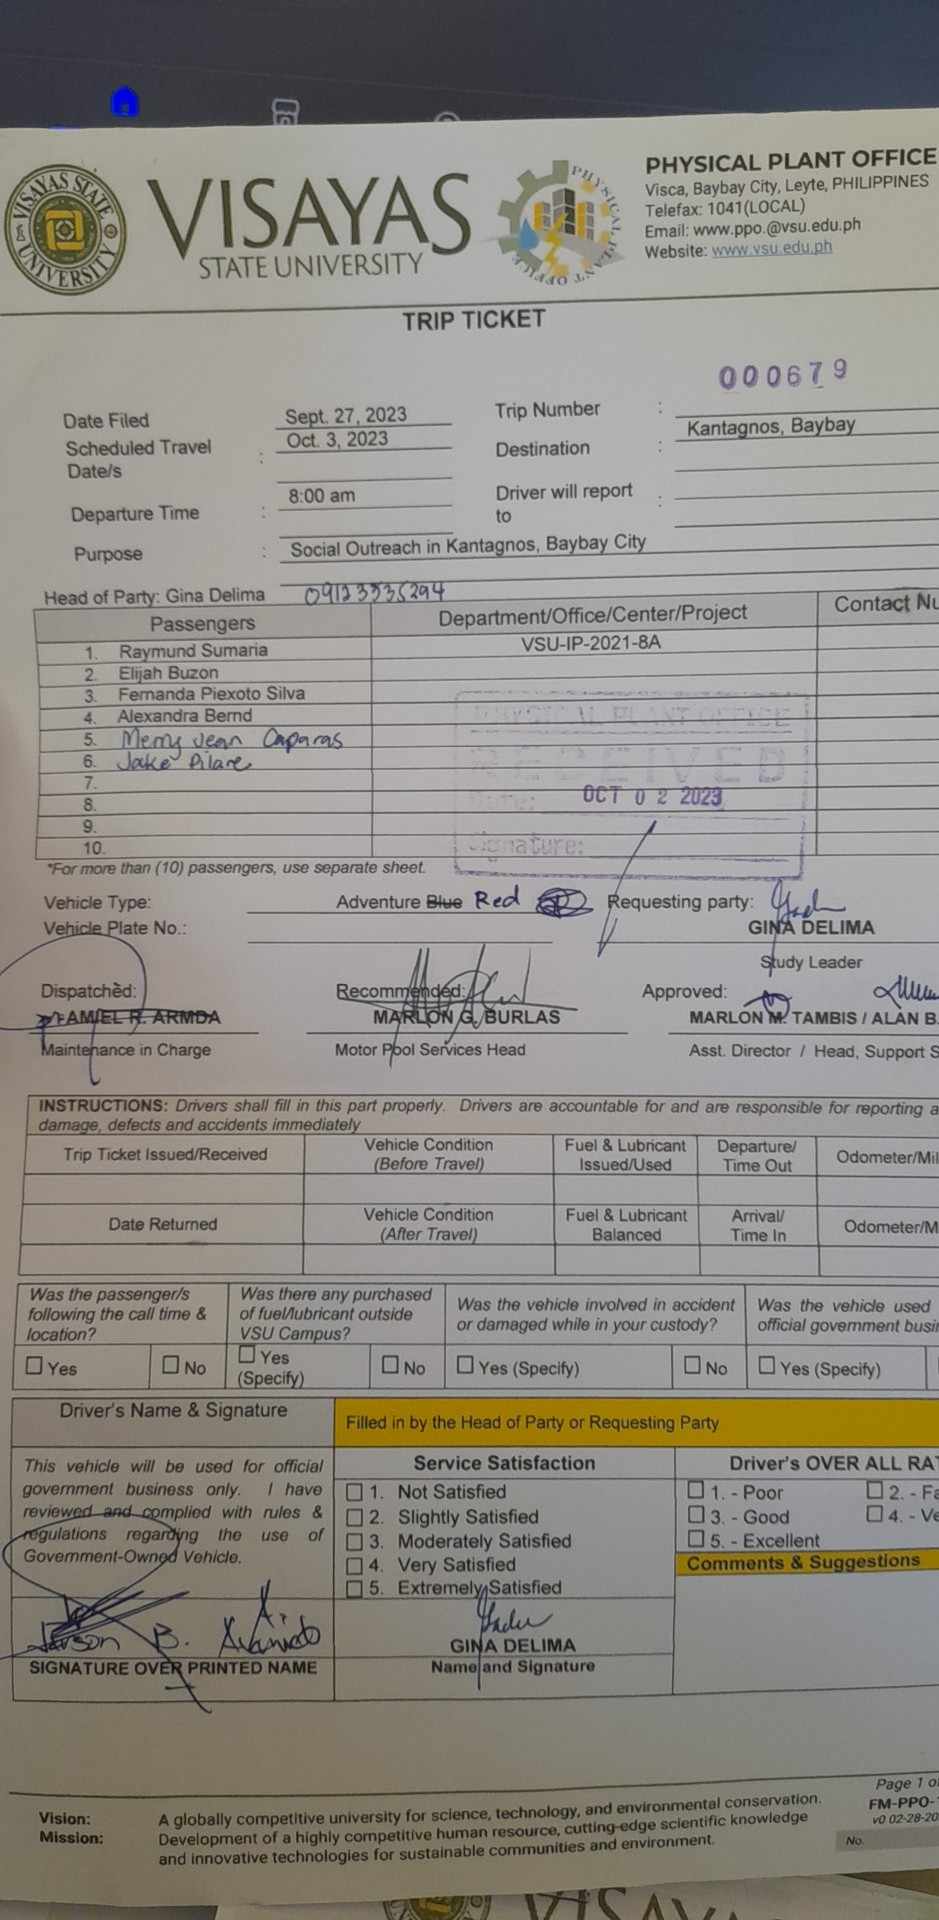 VISAYAS STATE UNIVERSITY
VISAYAS
STATE UNIVERSITY
PHYSICAL PLANT OFFICE
PHYSICAL PLANT OFFICE
Visca, Baybay City, Leyte, PHILIPPINES
Telefax: 1041(LOCAL)
Email: www.ppo.@vsu.edu.ph
Website: www.vsu.edu.ph
TRIP TICKET
000679
Date Filed Sept. 27, 2023 Trip Number :
Scheduled Travel Date/s : Oct. 3, 2023 Destination : Kantagnos, Baybay
Departure Time : 8:00 am Driver will report to :
Purpose : Social Outreach in Kantagnos, Baybay City
Head of Party: Gina Delima 09123535294
Passengers Department/Office/Center/Project Contact Nu
1. Raymund Sumaria VSU-IP-2021-8A
2. Elijah Buzon
3. Fernanda Piexoto Silva
4. Alexandra Bernd
5. Merry Jean Caparas
6. Jake Pilare
7.
8.
9.
10.
PHYSICAL PLANT OFFICE
RECEIVED
Date: OCT 02 2023
Signature:
*For more than (10) passengers, use separate sheet.
Vehicle Type: Adventure Blue Red Requesting party:
Vehicle Plate No.: GINA DELIMA
Study Leader
Dispatched: Recommended: Approved:
FAMIEL R. ARMDA MARLON G. BURLAS MARLON M. TAMBIS / ALAN B.
Maintenance in Charge Motor Pool Services Head Asst. Director / Head, Support S
INSTRUCTIONS: Drivers shall fill in this part properly. Drivers are accountable for and are responsible for reporting a
damage, defects and accidents immediately
Trip Ticket Issued/Received Vehicle Condition (Before Travel) Fuel & Lubricant Issued/Used Departure/ Time Out Odometer/Mil
Date Returned Vehicle Condition (After Travel) Fuel & Lubricant Balanced Arrival/ Time In Odometer/M
Was the passenger/s following the call time & location? Was there any purchased of fuel/lubricant outside VSU Campus? Was the vehicle involved in accident or damaged while in your custody? Was the vehicle used official government busi
Yes No Yes (Specify) No Yes (Specify) No Yes (Specify)
Driver's Name & Signature Filled in by the Head of Party or Requesting Party
This vehicle will be used for official
government business only. I have
reviewed and complied with rules &
regulations regarding the use of
Government-Owned Vehicle.
Service Satisfaction
1. Not Satisfied
2. Slightly Satisfied
3. Moderately Satisfied
4. Very Satisfied
5. Extremely Satisfied
Driver's OVER ALL RA
1. - Poor 2. - Fa
3. - Good 4. - Ve
5. - Excellent
Comments & Suggestions
B.
SIGNATURE OVER PRINTED NAME
GINA DELIMA
Name and Signature
Page 1 o
Vision: A globally competitive university for science, technology, and environmental conservation.
Mission: Development of a highly competitive human resource, cutting-edge scientific knowledge
and innovative technologies for sustainable communities and environment.
FM-PPO-
v0 02-28-20
No.
VISAYAS